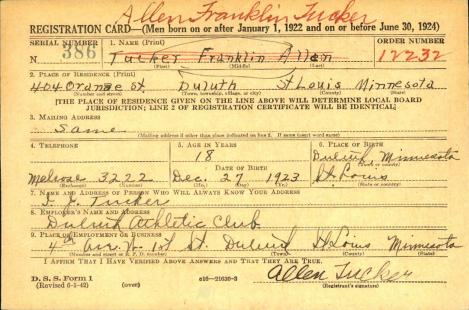 Allen Franklin Tucker
REGISTRATION CARD—(Men born on or after January 1, 1922 and on or before June 30, 1924)
SERIAL NUMBER 1. NAME (Print) ORDER NUMBER
N 386 Tucker Franklin Allen 12232
(First) (Middle) (Last)
2. PLACE OF RESIDENCE (Print)
404 Orange St. Duluth St. Louis Minnesota
(Number and street) (Town, township, village, or city) (County) (State)
[THE PLACE OF RESIDENCE GIVEN ON THE LINE ABOVE WILL DETERMINE LOCAL BOARD
JURISDICTION; LINE 2 OF REGISTRATION CERTIFICATE WILL BE IDENTICAL]
3. MAILING ADDRESS
Same
[Mailing address if other than place indicated on line 2. If same insert word same]
4. TELEPHONE 5. AGE IN YEARS 6. PLACE OF BIRTH
18 Duluth Minnesota
DATE OF BIRTH (Town or county)
Melrose 3222 Dec. 27 1923 St. Louis
(Exchange) (Number) (Mo.) (Day) (Yr.) (State or country)
7. NAME AND ADDRESS OF PERSON WHO WILL ALWAYS KNOW YOUR ADDRESS
Tucker
8. EMPLOYER'S NAME AND ADDRESS
Duluth Athletic Club
9. PLACE OF EMPLOYMENT OR BUSINESS
4th Ave. W. 1st St. Duluth St. Louis Minnesota
(Number and street or R. F. D. number) (Town) (County) (State)
I AFFIRM THAT I HAVE VERIFIED ABOVE ANSWERS AND THAT THEY ARE TRUE.
D. S. S. Form 1 Allen Tucker
(Revised 6-5-42) (over) (Registrant's signature)